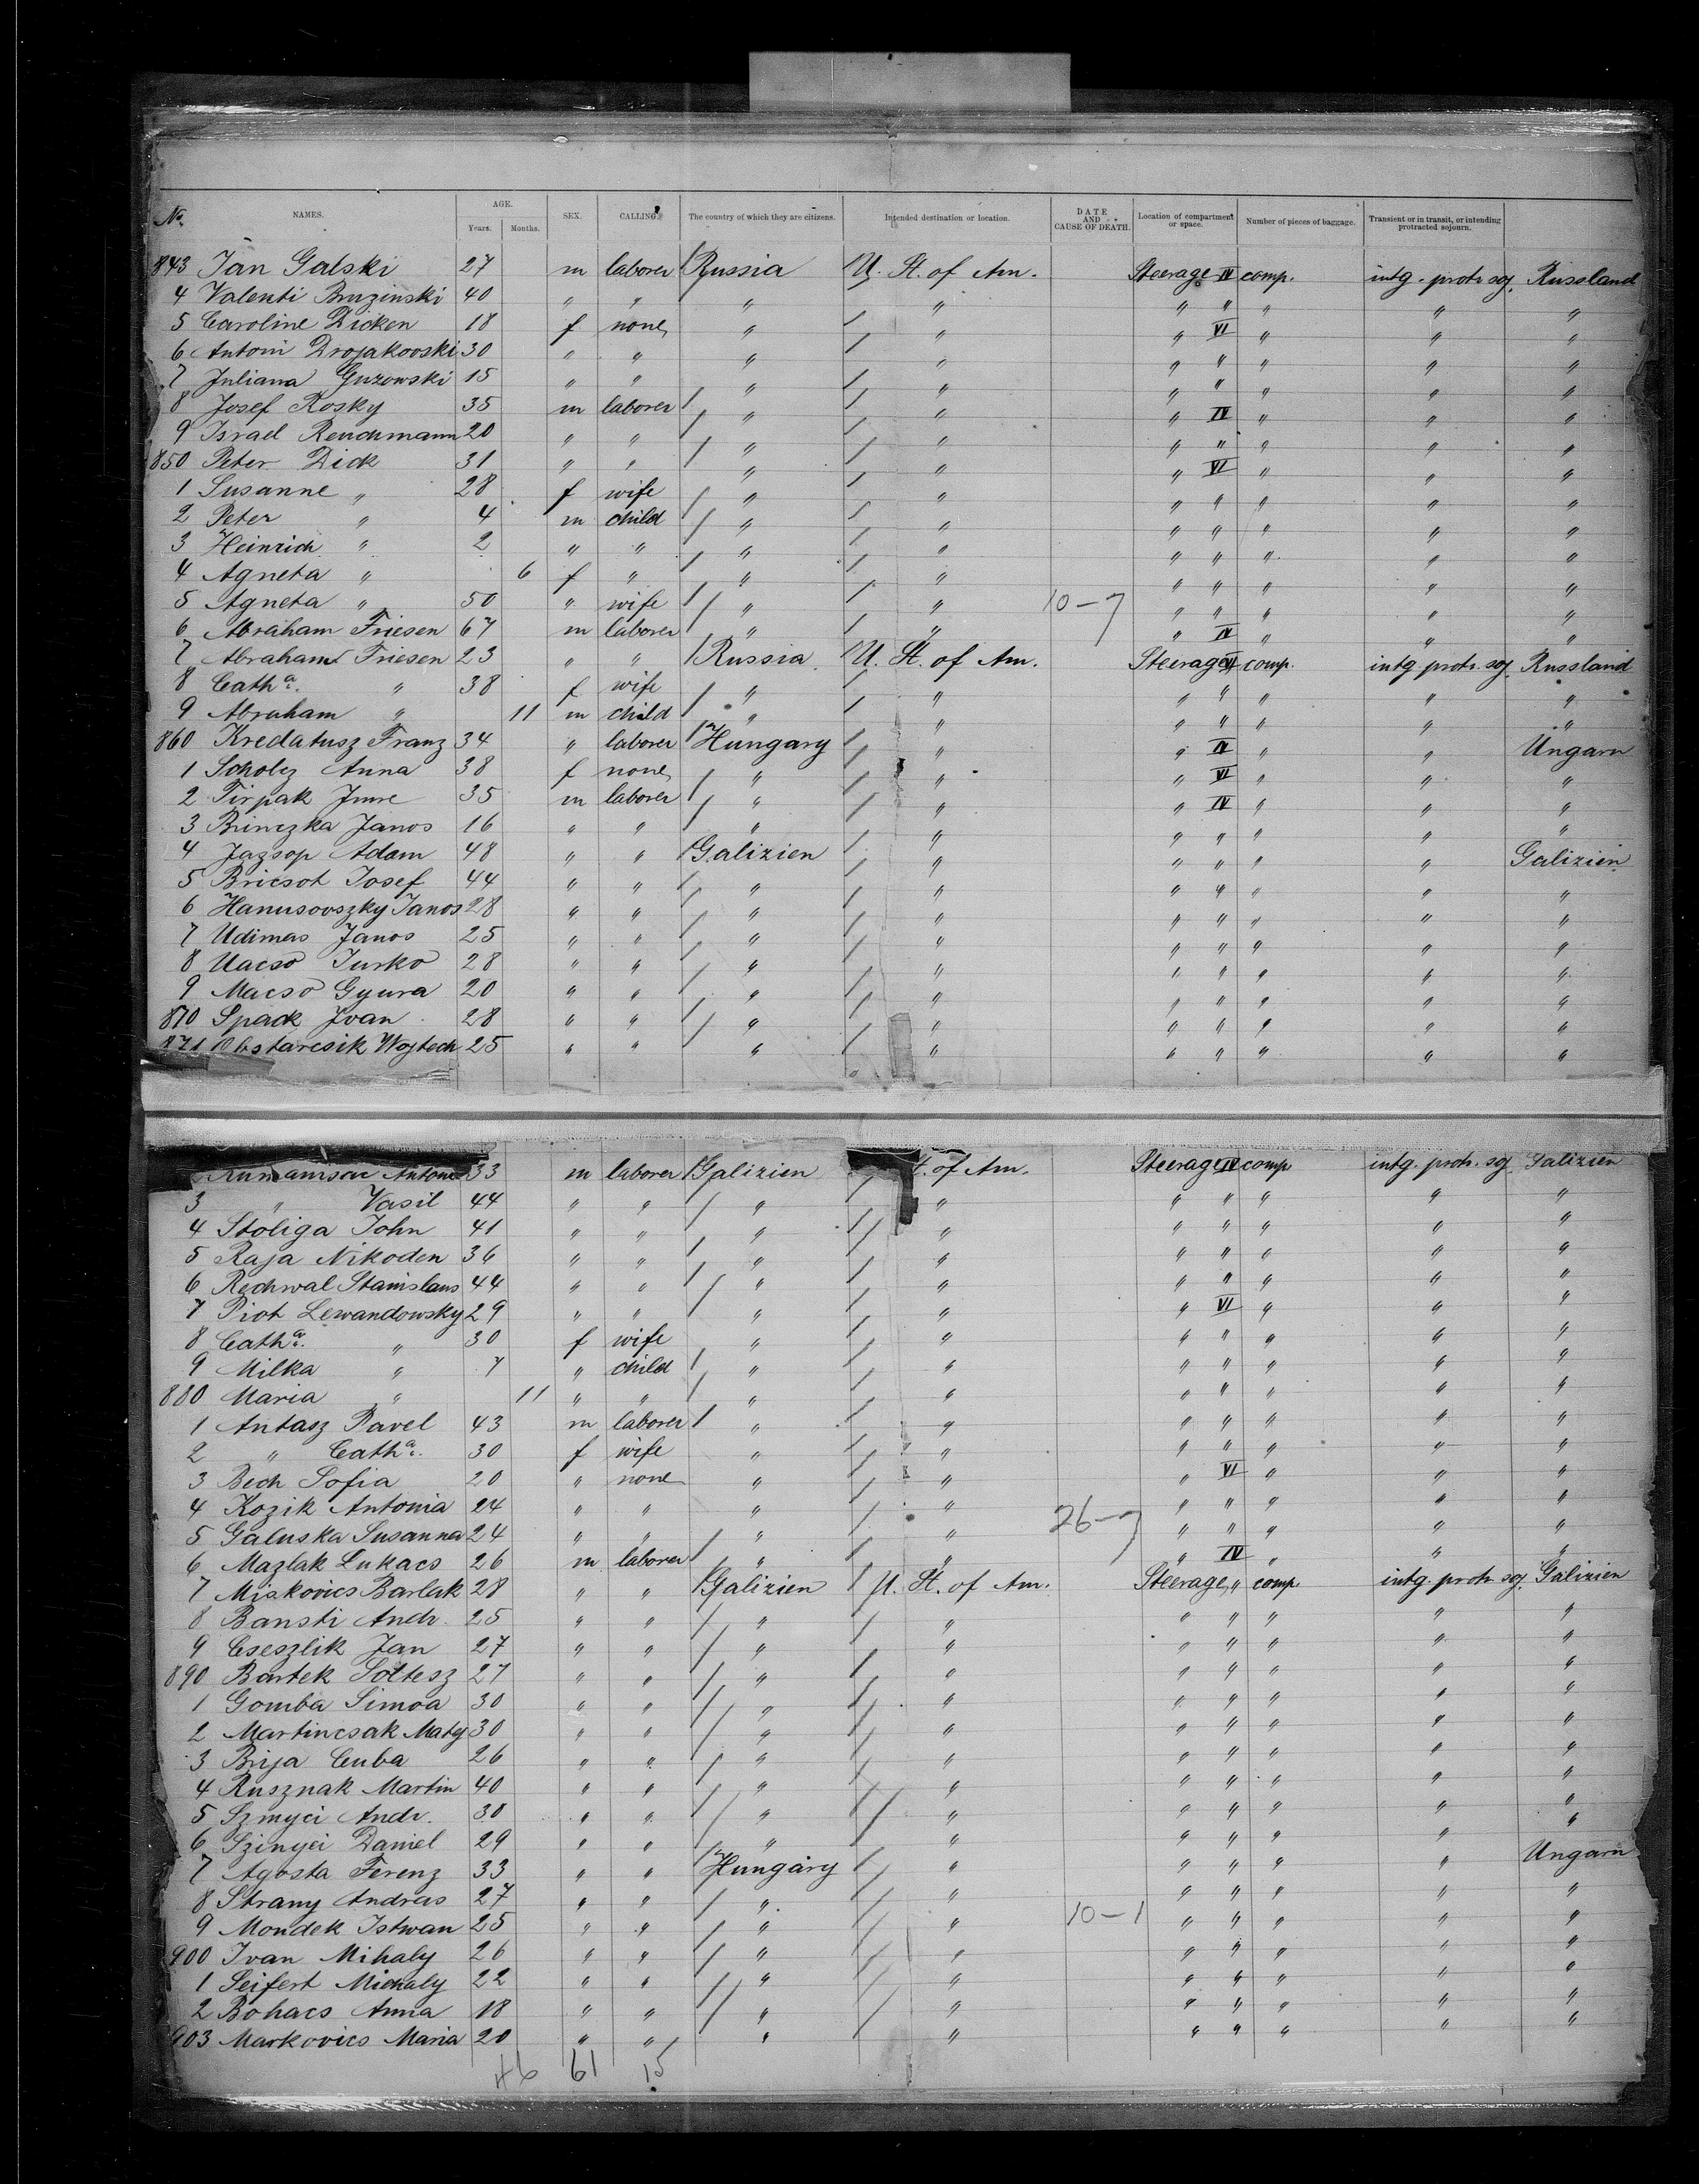 No. NAMES. AGE. Years. Months. SEX. CALLING. The country of which they are citizens. Intended destination or location. DATE AND CAUSE OF DEATH. Location of compartment or space. Number of pieces of baggage. Transient or in transit, or intending protracted sojourn.
843 Jan Galski 27 m laborer Russia U. St. of Am. Steerage IV comp. intg. protr. soj. Russland
4 Valenti Bruzinski 40 " " " " " " " " "
5 Caroline Dicken 18 f none " " " VI " " "
6 Antoni Drojakovski 30 " " " " " " " " "
7 Juliana Guzowski 15 " " " " " " " "
8 Josef Rosky 35 m laborer " " " IV " " "
9 Israel Reuchmann 20 " " " " " " " " "
850 Peter Dick 31 " " " " " VI " " "
1 Susanne " 28 f wife " " " " " " "
2 Peter " 4 m child " " " " " " "
3 Heinrich " 2 " " " " " " " " "
4 Agneta " 6 f " " " " " " " "
5 Agneta " 50 " wife " " 10-7 " " " " "
6 Abraham Friesen 67 m laborer " " " IV " " "
7 Abraham Friesen 23 " " Russia U. St. of Am. Steerage VI comp. intg. protr. soj. Russland
8 Cath a. " 38 f wife " " " " " " "
9 Abraham " 11 m child " " " " " " "
860 Kredatusz Franz 34 " laborer Hungary " " IV " " Ungarn
1 Scholcz Anna 38 f none " " " VI " " "
2 Tirpak Imre 35 m laborer " " " IV " " "
3 Brinczka Janos 16 " " " " " " " " "
4 Jazsop Adam 48 " " Galizien " " " " " Galizien
5 Bricsot Josef 44 " " " " " " " " "
6 Hanusovszky Janos 28 " " " " " " " " "
7 Udimas Janos 25 " " " " " " " " "
8 Uacso Jurko 28 " " " " " " " " "
9 Macso Gyura 20 " " " " " " " " "
870 Spack Ivan 28 " " " " " " " " "
871 Obstarcsik Wojtech 25 " " " " " " " " "
Antone 33 m laborer Galizien St. of Am. Steerage IV comp intg. protr. soj. Galizien
3 " Vasil 44 " " " " " " " " "
4 Stoliga John 41 " " " " " " " " "
5 Raja Nikoden 36 " " " " " " " " "
6 Rechwal Stanislaus 44 " " " " " " " " "
7 Piotr Lewandowsky 29 " " " " " VI " " "
8 Cath a. " 30 f wife " " " " " " "
9 Milka " 7 " child " " " " " " "
880 Maria " 11 " " " " " " " " "
1 Antasz Pavel 43 m laborer " " " " " " "
2 " Cath a. 30 f wife " " " " " " "
3 Bech Sofia 20 " none " " " VI " " "
4 Kozik Antonia 24 " " " " " " " " "
5 Galuska Susanna 24 " " " " 26-7 " " " " "
6 Mazlak Lukacs 26 m laborer " " " IV " " "
7 Miskovics Barlak 28 " " Galizien U. St. of Am. Steerage " comp. intg. protr. soj. Galizien
8 Bansti Andr. 25 " " " " " " " " "
9 Cseszlik Jan 27 " " " " " " " " "
890 Bartek Soltesz 27 " " " " " " " " "
1 Gomba Simoa 30 " " " " " " " " "
2 Martincsak Maty 30 " " " " " " " " "
3 Brija Cuba 26 " " " " " " " " "
4 Rusznak Martin 40 " " " " " " " " "
5 Szinyei Andr. 30 " " " " " " " " "
6 Szinyei Daniel 29 " " " " " " " " "
7 Agosta Ferenz 33 " " Hungary " " " " " Ungarn
8 Strany Andreas 27 " " " " " " " " "
9 Mondek Istwan 25 " " " " 10-1 " " " " "
900 Ivan Mihaly 26 " " " " " " " " "
1 Seifert Michaly 22 " " " " " " " " "
2 Bohacs Anna 18 " " " " " " " " "
903 Markovics Maria 20 " " " " " " " " "
46 61 15